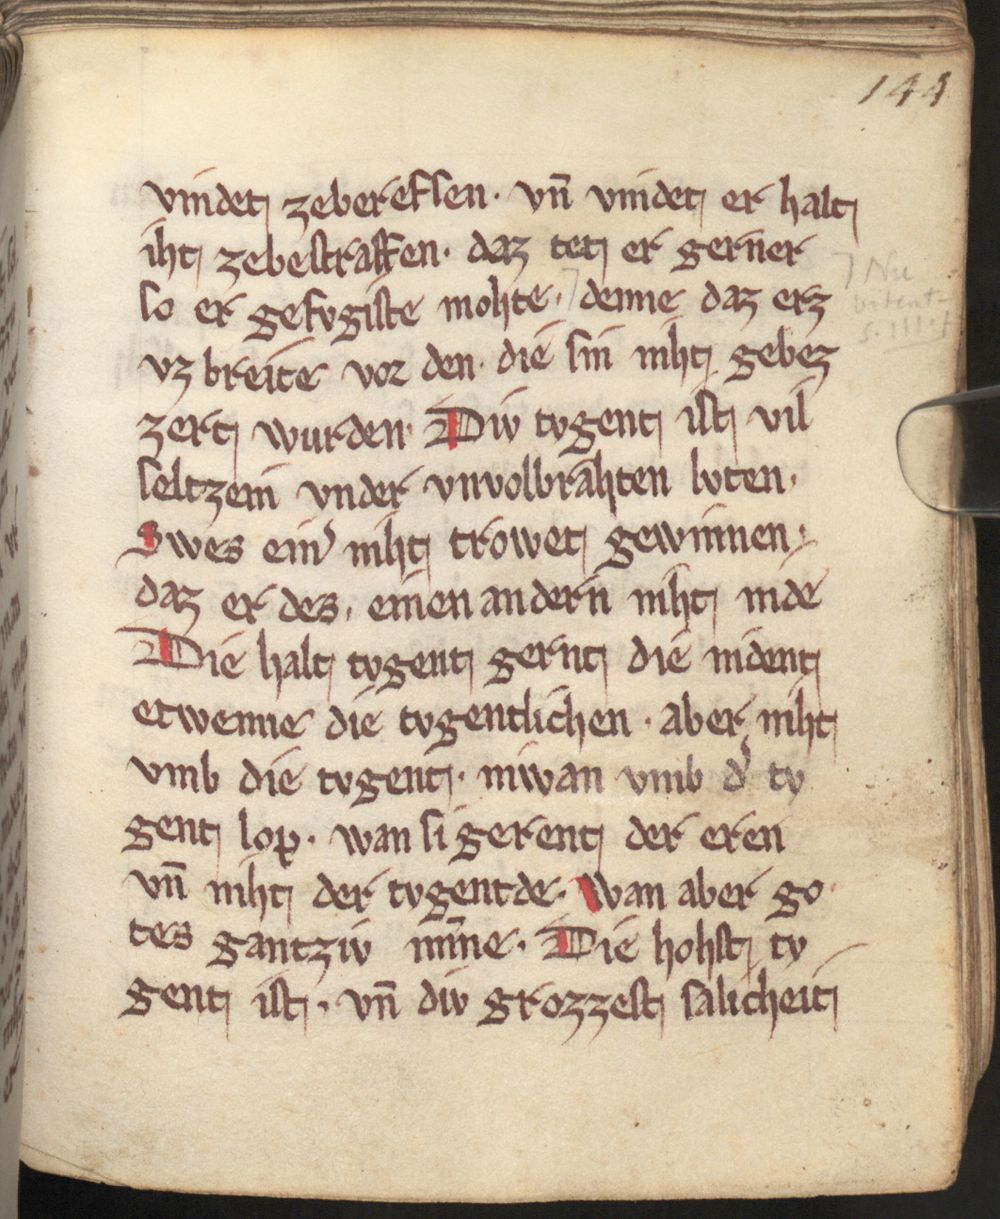 144
vindet zebereffen · vn̄ vindet er halt
iht zebestraffen · daz tet er gern̄er
so er gefvgiste mohte · denne daz erz
vz breite vor den · die sin niht gebez
zert wurden · Div tvgent ist vil
seltzein vnder vnvolbrahten lvten ·
Swes ein͛ niht trowet gewinnen ·
daz er des · einen andern niht nide
Die halt tvgent gernt die nident
etwenne die tvgentlichen · aber niht
vmb die tvgent · niwan vmb d͛ tv
gent lop · wan si gerent der eren
vn̄ niht der tvgentde · Wan aber go
tes gantziv min̄e · Die hohst tv
gent ist · vn̄ div grozzest salicheit
7 Nu